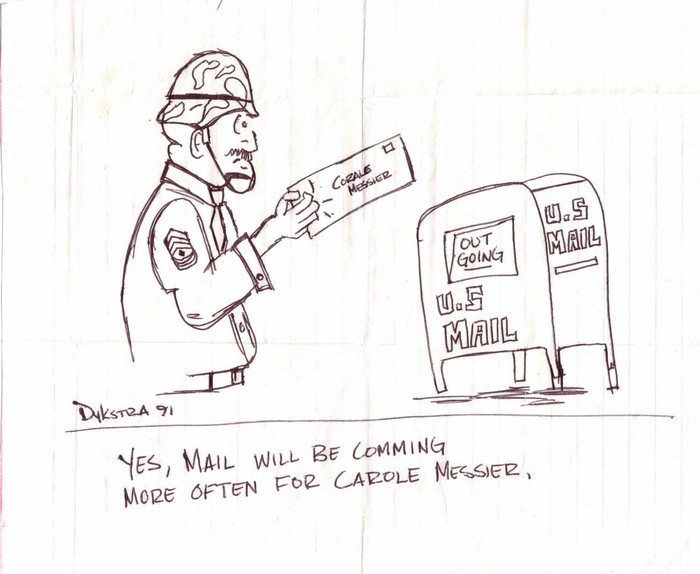 CORALE
MESSIER
OUT
GOING
U.S
MAIL
U.S
MAIL
DYKSTRA 91
YES, MAIL WILL BE COMMING
MORE OFTEN FOR CAROLE MESSIER.